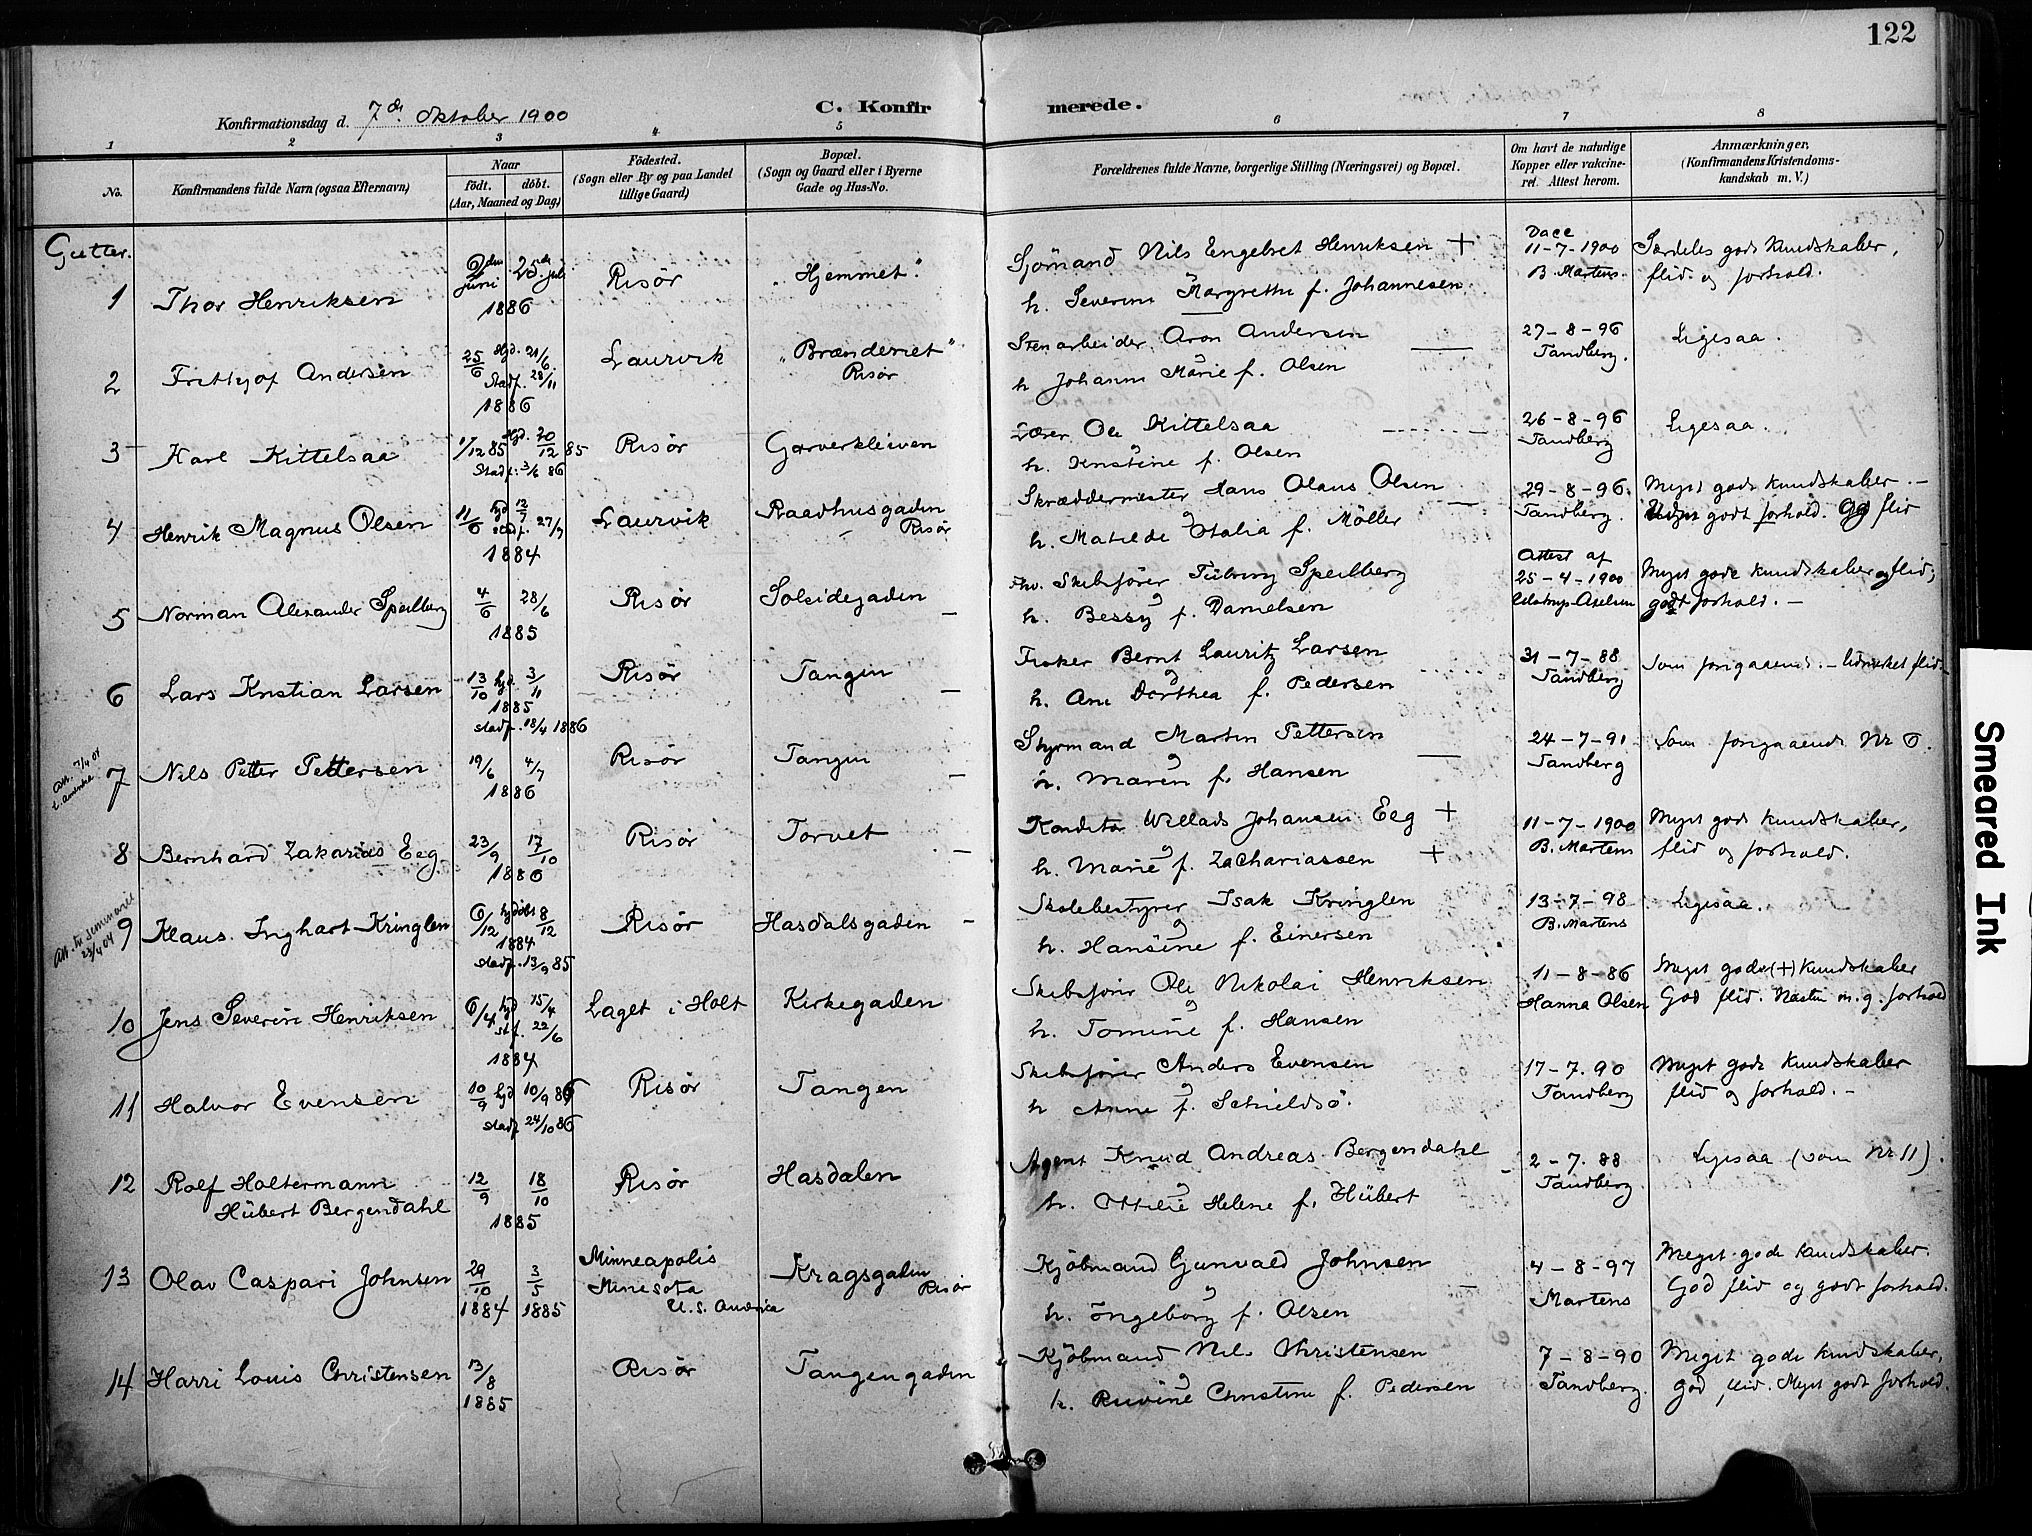 122
Konfirmationsdag d. 7de Oktober 1900
C. Konfirmerede.
1 2 3 4 5 6 7 8
No.
Konfirmandens fulde Navn (ogsaa Efternavn)
Naar
født. döbt.
(Aar, Maaned og Dag)
Födested.
(Sogn eller By og paa Landet
tillige Gaard)
Bopæl.
(Sogn og Gaard eller i Byerne
Gade og Hus-No.
Forældrenes fulde Navne, borgerlige Stilling (Næringsvei) og Bopæl.
Om havt de naturlige
Kopper eller vakcine-
ret. Attest herom.
Anmærkninger,
(Konfirmandens Kristendoms-
kundskab m. V.)
Gutter.
1 Thor Henriksen
Juni 25de juli
1886
Risör
"Hjemmet".
Sjömand Nils Engelbret Henriksen +
h. Severine Margrethe f. Johannesen.
11-7-1900
B. Martens.
Særdeles gode kundskaber,
flid og forhold.
2 Frithjof Andersen
25/6 Hjd. 21/6
Stadf. 28/11
1886
Laurvik
"Brænderiet"
Risør
Stenarbeider Aron Andersen
h Johanne Marie f. Olsen
27-8-96
Tandberg.
Ligesaa.
3 Karl Kittelsaa
1/12 85 Hjd. 20/12 85
Stadf. 3/6 86
Risør
Garverkleiven
Lærer Ole Kittelsaa
h. Kristine f. Olsen
26-8-96
Tandberg
Ligesaa.
4 Henrik Magnus Olsen
11/6 hjd 13/7
stadf. 27/9
1884
Laurvik
Raadhusgaden
Risør
Skræddermester Hans Olaus Olsen
h. Matilde Otalia f. Möller
29-8-96.
Tandberg.
Meget gode kundskaber.-
godt forhold. flid
5 Norman Alexander Speilberg
4/6 28/6
1885
Risør
Solsidegaden
Skibsfører Speilberg
h. Bessy f. Danielsen
Attest af
25-4-1900
Meget gode kundskaber og flid;
godt forhold.-
6 Lars Kristian Larsen
13/10 hjd. 3/11
1885
stadf. 18/4 1886
Risør
Tangen
Fisker Bernt Lauritz Larsen
h. Ane Dorthea f. Pedersen
31-7-88
Tandberg
Som foregaaende.- Udmerket flid.
7 Nils Petter Pettersen
Att. 7/4 01
t. Amerika
19/6 4/7
1886
Risør
Tangen
Styrmand Martin Pettersen
h. Maren f. Hansen
24-7-91
Tandberg
Som foregaaende Nr 6.
8 Bernhard Zakarias Eeg
23/9 17/10
1886
Risør
Torvet
Konditor Willads Johansen Eeg +
h. Marie f. Zachariassen +
11-7-1900
B. Martens
Meget gode kundskaber,
flid og forhold.
9 Klaus Inghart Kringlen
Att. til seminariet
23/4 04
6/12 hjdöbt 8/12
1884
stadf. 13/9 85
Risør
Hasdalsgaden
Skolebestyrer Isak Kringlen
h. Hansine f. Einersen
13-7-98
B. Martens
Ligesaa.
10 Jens Severin Henriksen
6/4 hjd 15/4
st.f. 22/6
1884
Laget i Holt
Kirkegaden
Skibsfører Ole Nikolai Henriksen
h. Tomine f. Hansen
11-8-86
Hanna Olsen
Meget gode (+) kundskaber
God flid. Næsten m.g. forhold
11 Halvor Evensen
10/9 hjd 10/9 86
stadf. 24/10 86
Risør
Tangen
Skibsfører Anders Evensen
h Anne f. Schieldsö.
17-7.90
Tandberg
Meget gode kundskaber
flid og forhold.-
12 Rolf Holtermann
Hübert Bergendahl
12/9 18/10
1885
Risør
Hasdalen
Agent Knud Andreas Bergendahl
h. Ottilie Helene f. Hübert
2-7.88
Tandberg
Ligesaa (som Nr 11).
13 Olav Caspari Johnsen
29/10 3/5
1884 1885
Minneapolis
Minesota
U.S. America
Kragsgaden
Risør
Kjöbmand Gunvald Johnsen
h. Ingeborg f. Olsen
4-8-97
Martens
Meget gode kundskaber.
God flid og godt forhold.
14 Harri Louis Christensen
13/8
1885
Risør
Tangengaden
Kjöbmand Nils Christensen
h. Christine f. Pedersen
7-8-90
Tandberg.
Meget gode kundskaber,
god flid. Meget godt forhold.
Smeared Ink